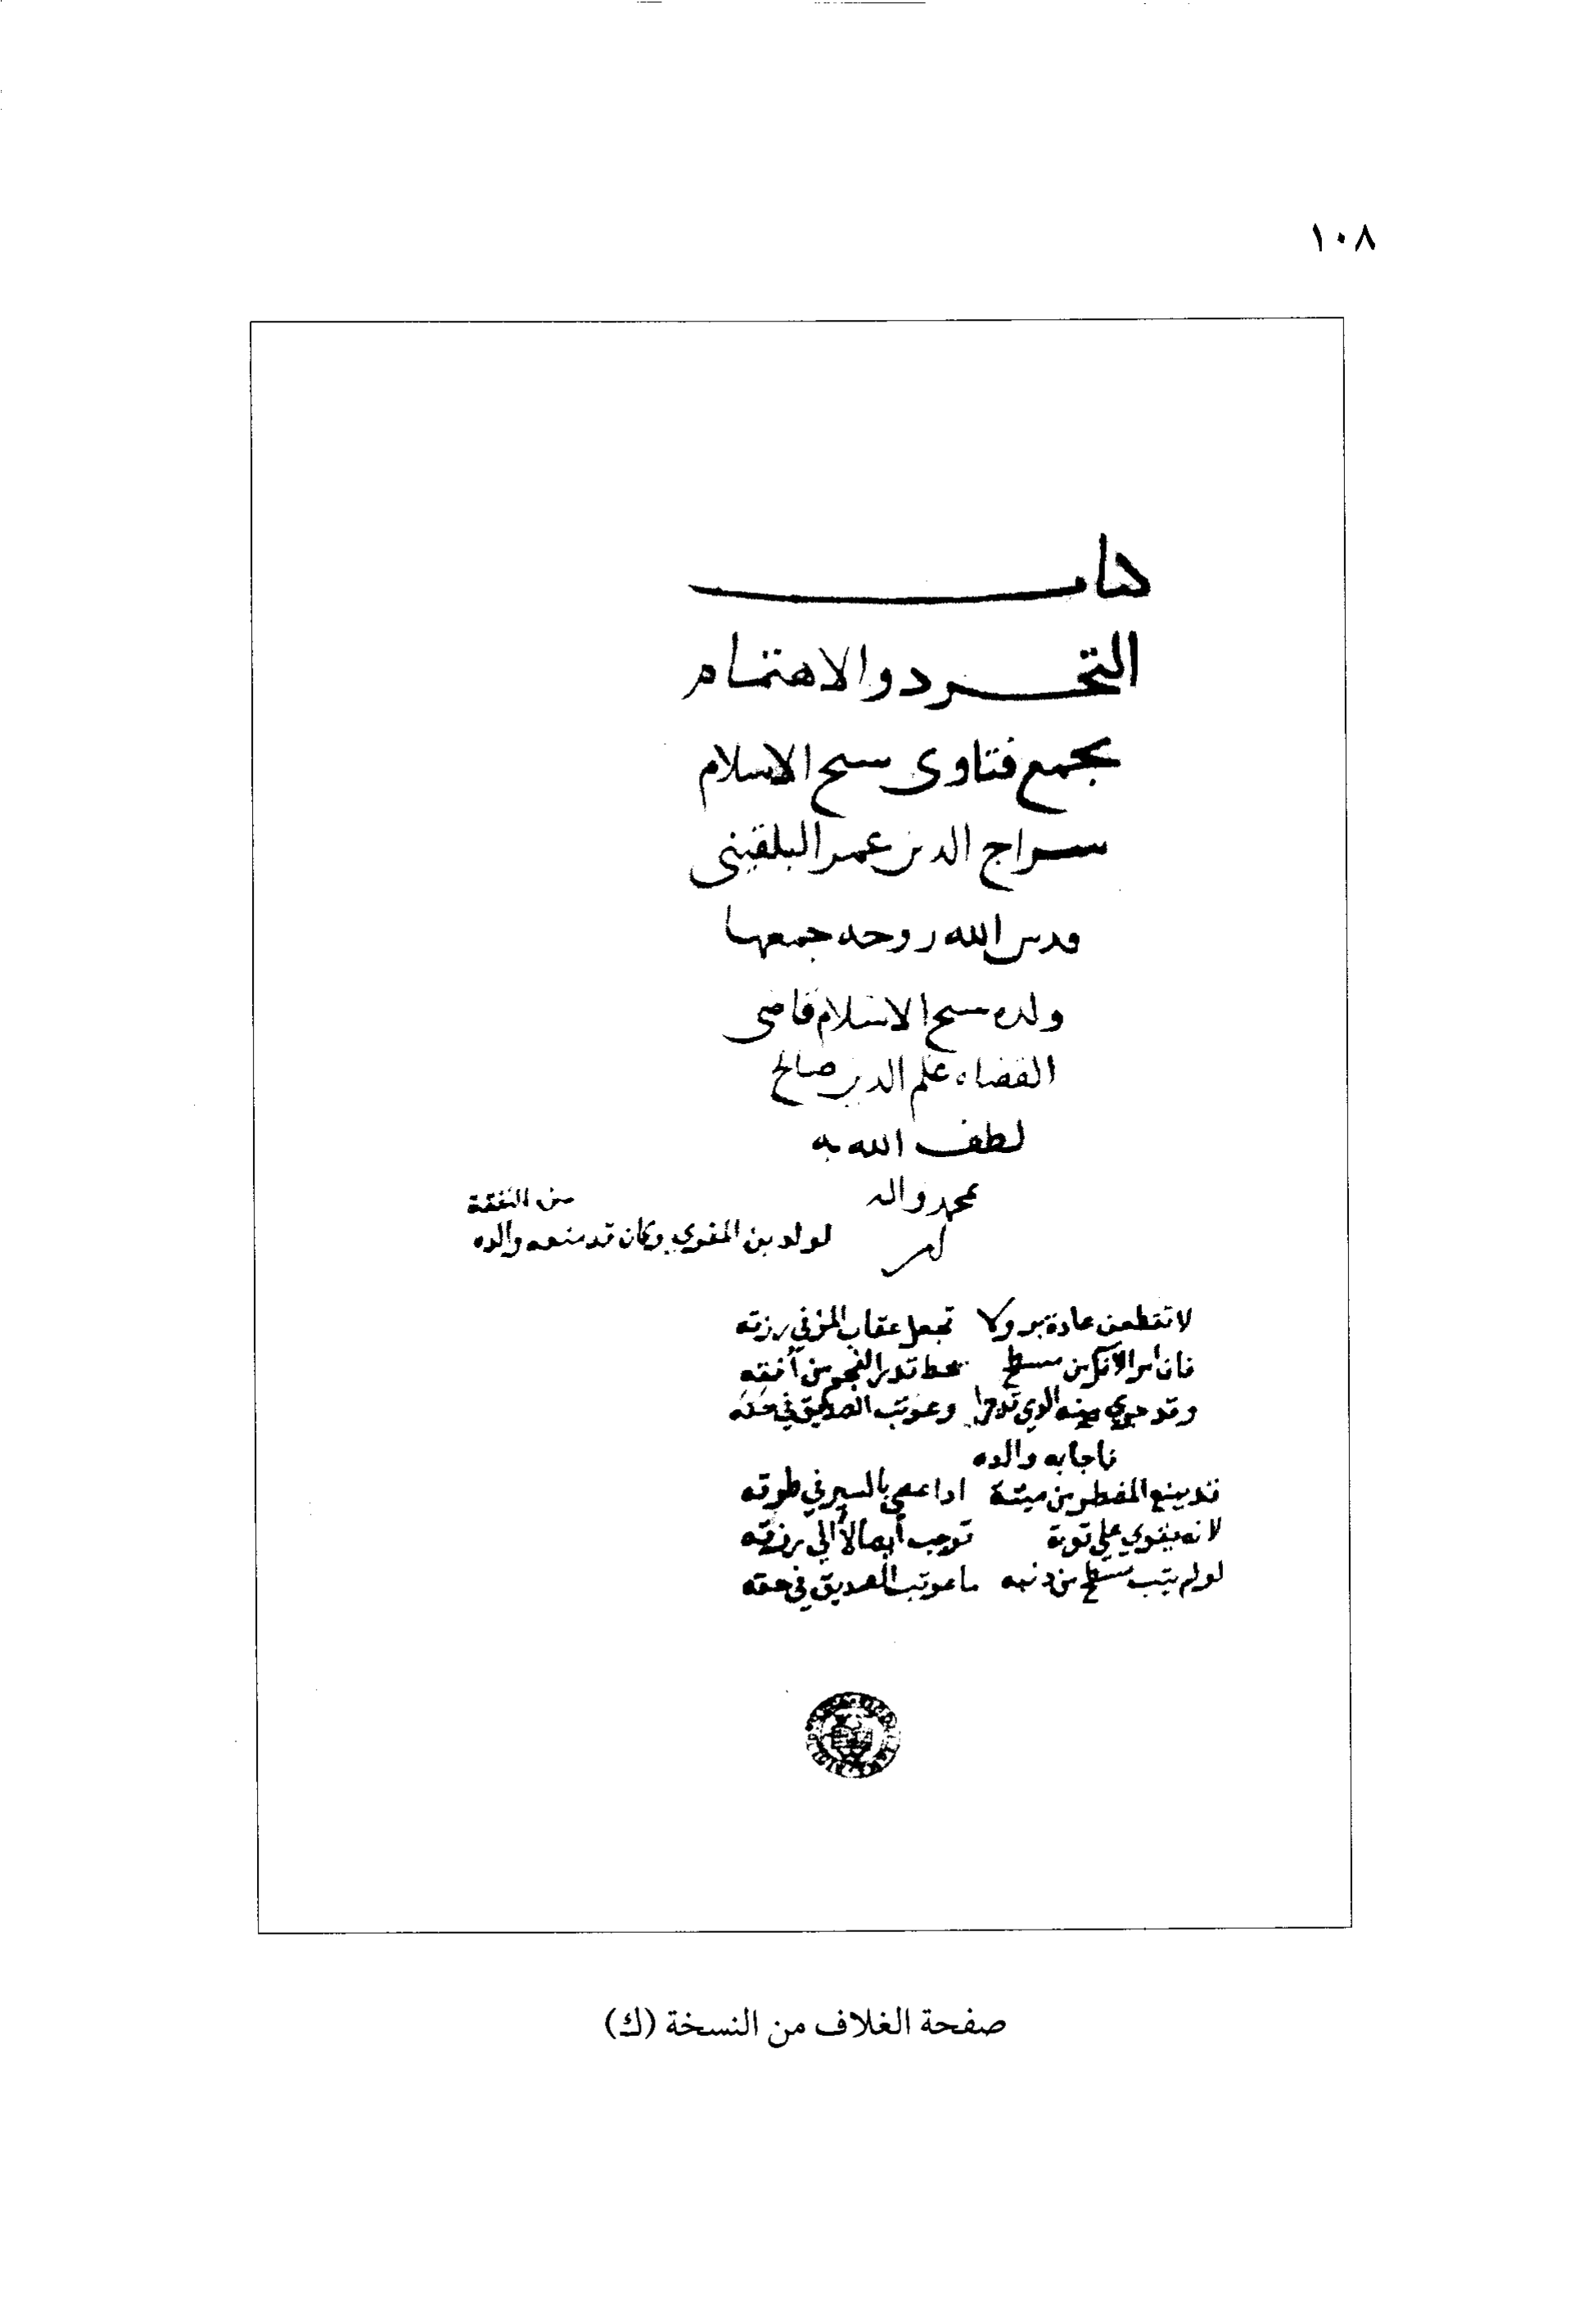 ١٠٨
كتاب
التجرد والاهتمام
بجمع فتاوى شيخ الاسلام
سراج الدين عمر البلقيني
قدس الله روحه جمعها
ولده شيخ الاسلام قاضي
القضاه علم الدين صالح
لطف الله به
بمحمد واله
من النفقة
لولد بن المقري وكان قد منعه والده
لا تقطعن عادة بر ولا تجعل عقاب المرء في رزقه
فان امر الافك من مسطح يحط قدر النجم من أفقه
وقد جرى منه الذي قد جرا وعوتب الصديق في حقه
فاجابه والده
قد يمنع المضطر من ميتة اذا عصى بالسير في طرقه
لانه يقوي على توبة توجب أيصالا الي رزقه
لو لم يتب مسطح من ذنبه ما عوتب الصديق في حقه
صفحة الغلاف من النسخة (ك)